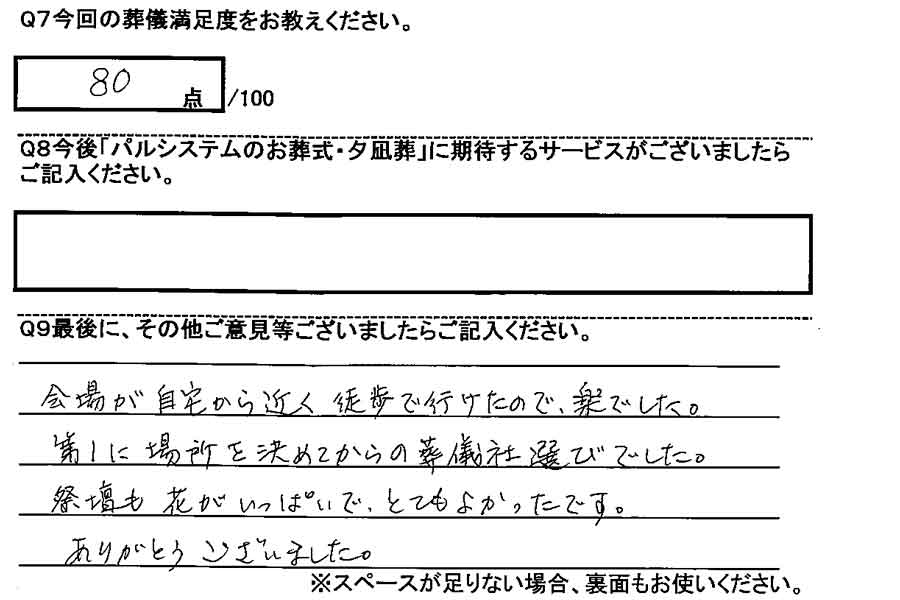 Q7今回の葬儀満足度をお教えください。
80点/100
Q8今後「パルシステムのお葬式・夕凪葬」に期待するサービスがございましたら
ご記入ください。
Q9最後に、その他ご意見等ございましたらご記入ください。
会場が自宅から近く徒歩で行けたので、楽でした。
第1に場所を決めてからの葬儀社選びでした。
祭壇も花がいっぱいで、とてもよかったです。
ありがとうございました。
※スペースが足りない場合、裏面もお使いください。